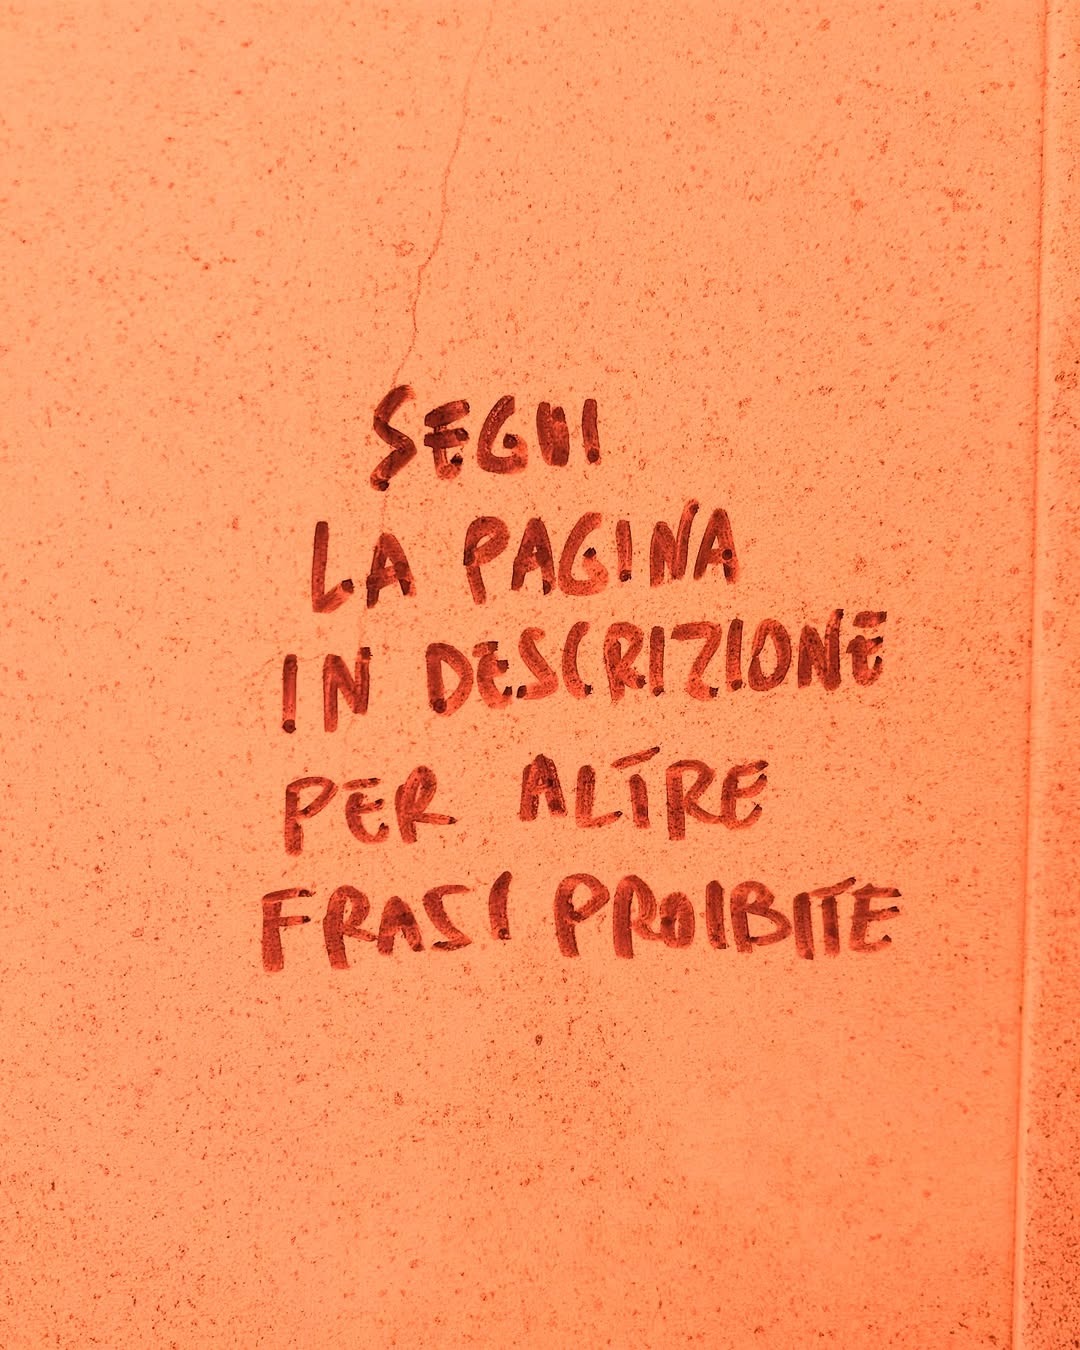 SEGUI
LA PAGINA
IN DESCRIZIONE
PER ALTRE
FRASI PROIBITE